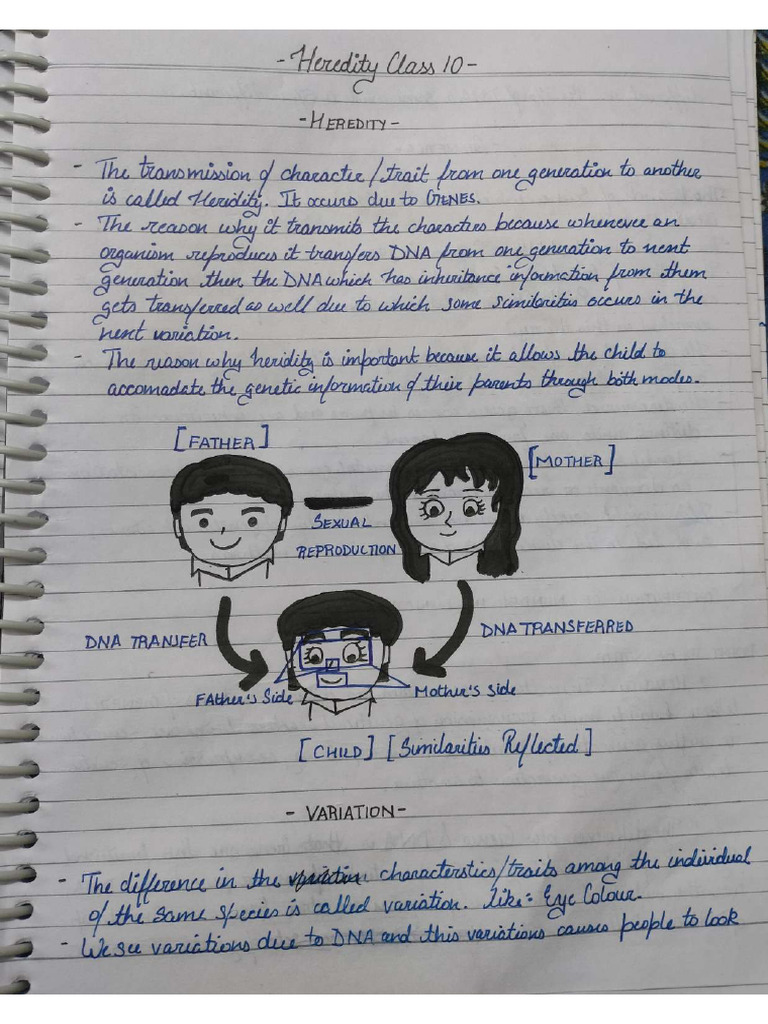 - Heredity Class 10 -
- HEREDITY -
- The transmission of character/trait from one generation to another
is called Heridity. It occurs due to GENES.
- The reason why it transmits the characters because whenever an
organism reproduces it transfers DNA from one generation to next
generation then the DNA which has inheritance information from them
gets transferred as well due to which some scimilaritis occurs in the
next variation.
- The reason why heridity is important because it allows the child to
accomadate the genetic information of their parents through both modes.
[FATHER]
[MOTHER]
SEXUAL
REPRODUCTION
DNA TRANSFER
DNA TRANSFERRED
FAther's Side
Mother's Side
[CHILD] [Similarities Reflected]
- VARIATION -
- The difference in the characterstics/traits among the individual
of the same species is called variation. like: Eye Colour.
- We see variations due to DNA and this variations causes people to look